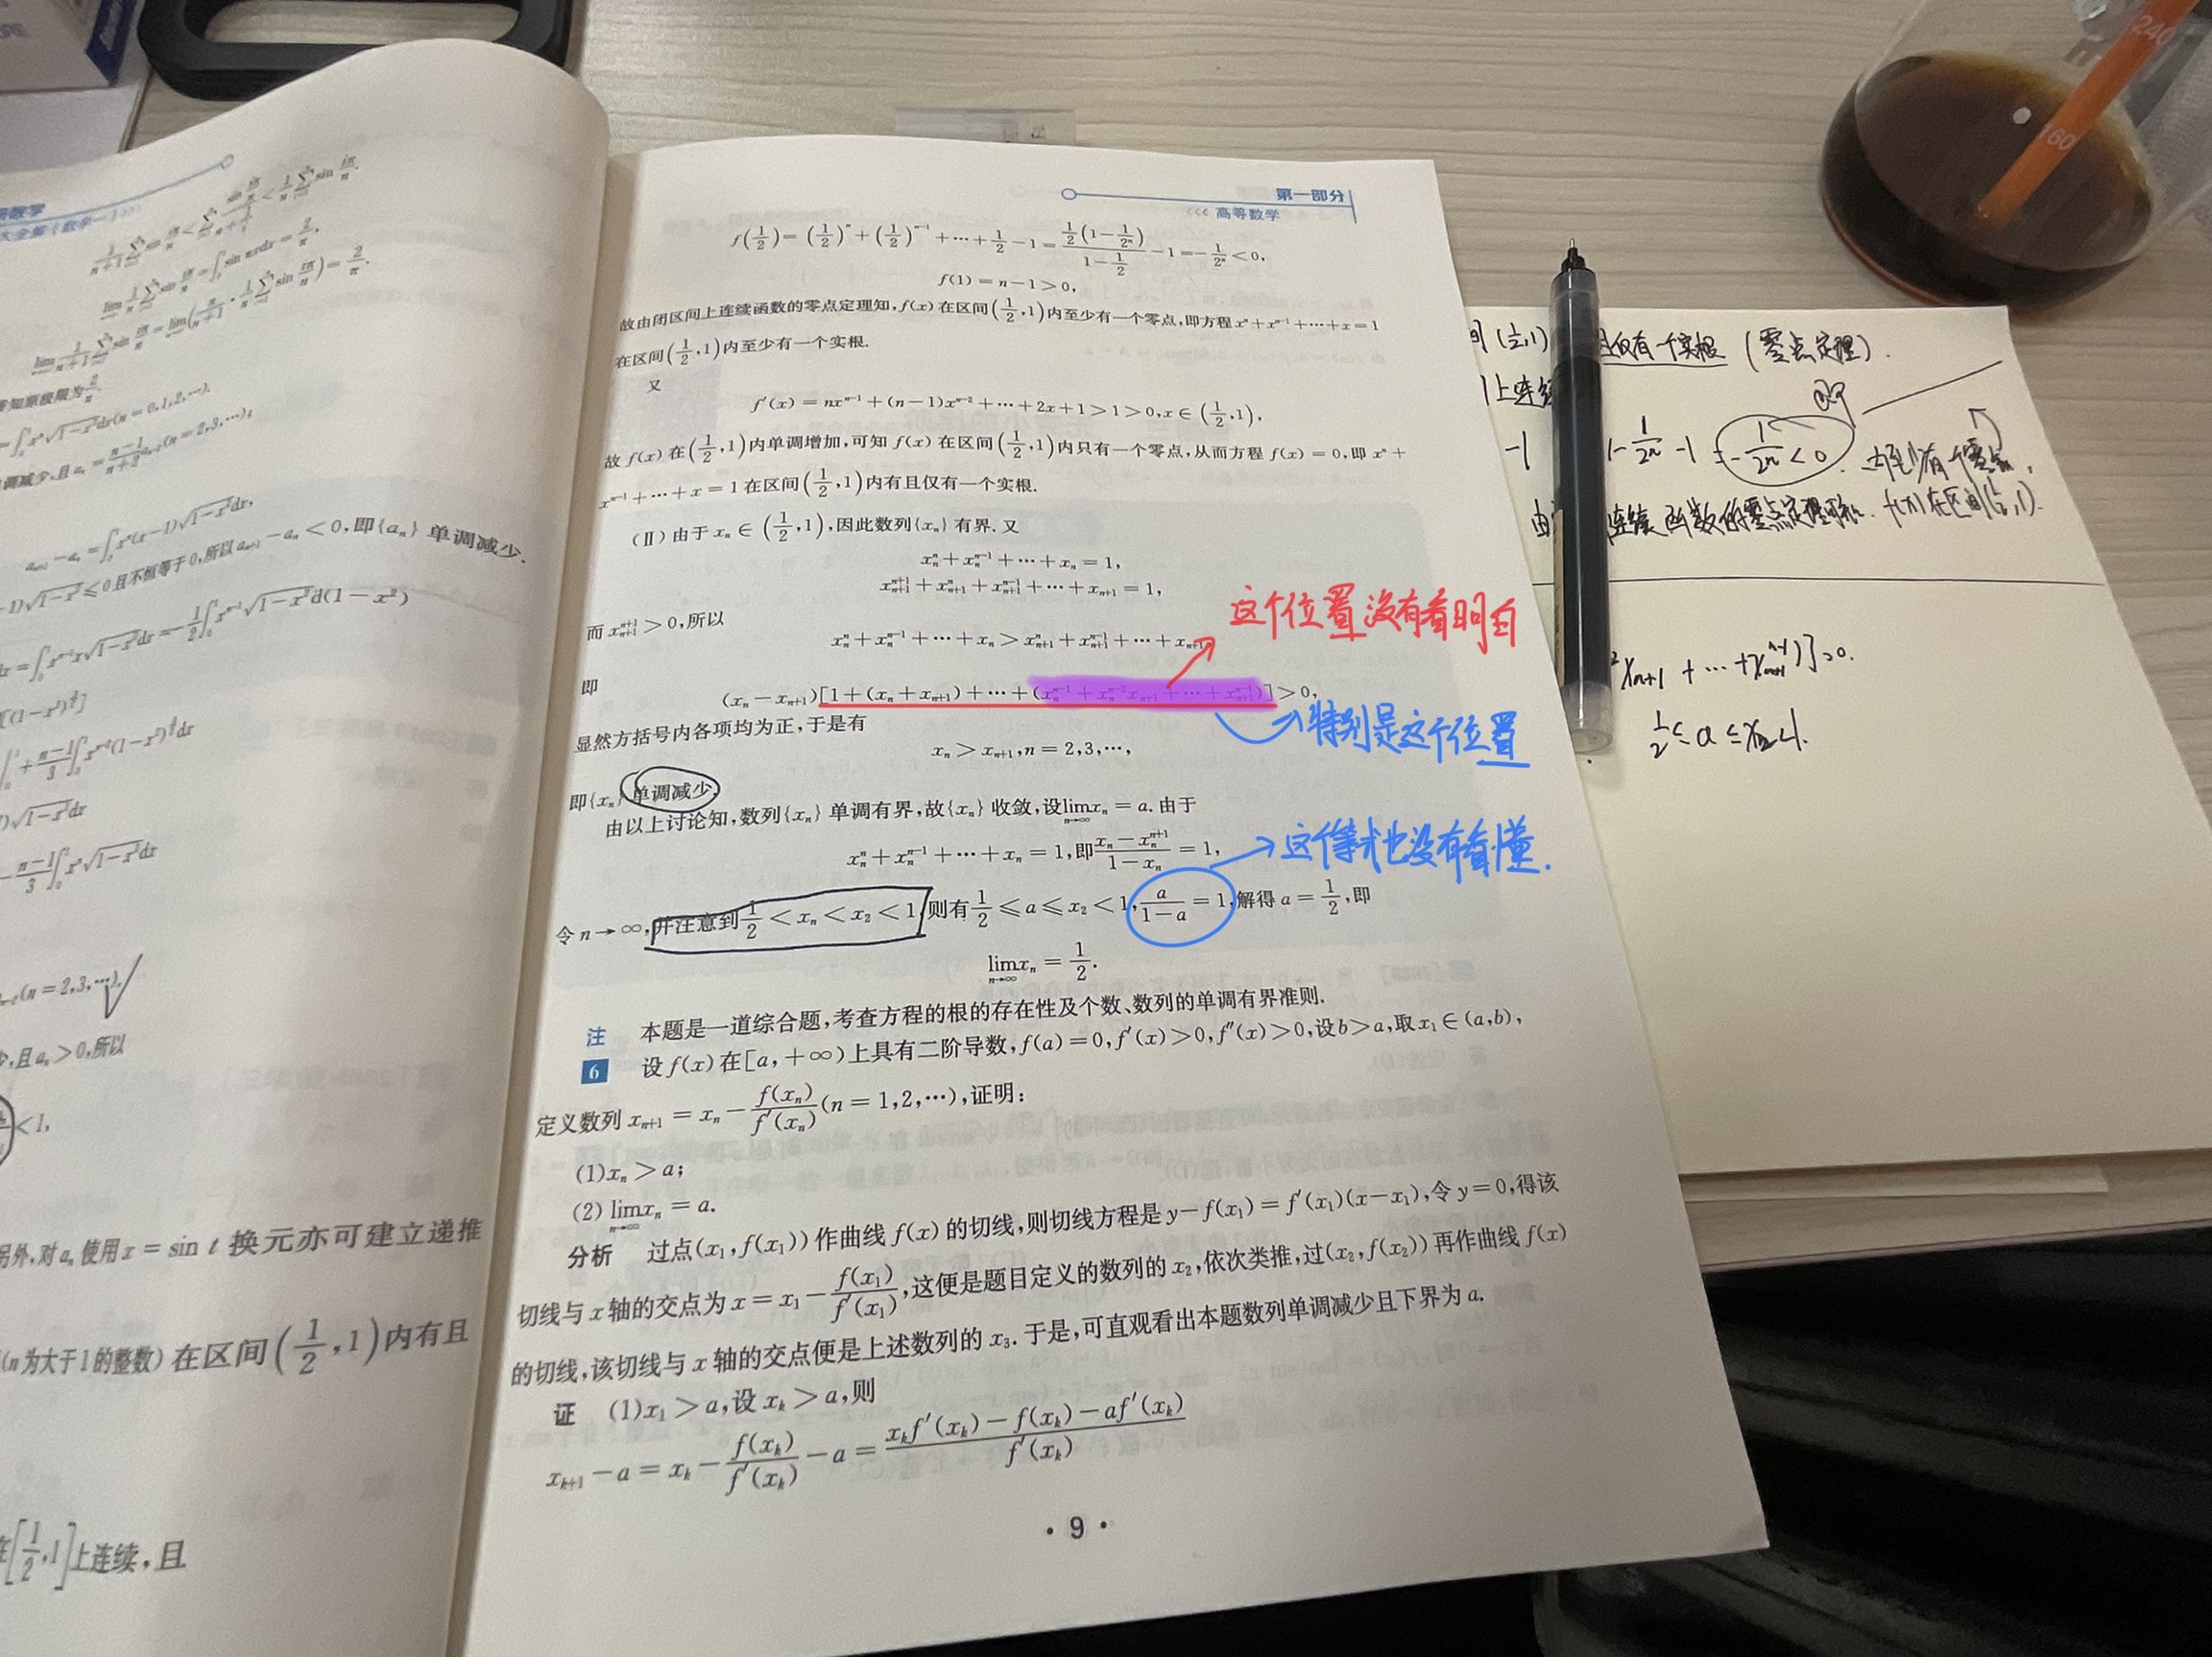 第一部分
<<< 高等数学
f(1/2)=(1/2)^n+(1/2)^{n-1}+⋯+1/2-1=\frac{\frac{1}{2}(1-\frac{1}{2^n})}{1-\frac{1}{2}}-1=-\frac{1}{2^n}<0,
f(1)=n-1>0,
故由闭区间上连续函数的零点定理知,f(x)在区间(1/2,1)内至少有一个零点,即方程x^n+x^{n-1}+⋯+x=1
在区间(1/2,1)内至少有一个实根.
又
f'(x)=nx^{n-1}+(n-1)x^{n-2}+⋯+2x+1>1>0,x∈(1/2,1),
故f(x)在(1/2,1)内单调增加,可知f(x)在区间(1/2,1)内只有一个零点,从而方程f(x)=0,即x^n+
x^{n-1}+⋯+x=1在区间(1/2,1)内有且仅有一个实根.
(Ⅱ)由于x_n∈(1/2,1),因此数列{x_n}有界.又
x_n^n+x_n^{n-1}+⋯+x_n=1,
x_{n+1}^{n+1}+x_{n+1}^n+x_{n+1}^{n-1}+⋯+x_{n+1}=1,
而x_{n+1}^{n+1}>0,所以
x_n^n+x_n^{n-1}+⋯+x_n>x_{n+1}^n+x_{n+1}^{n-1}+⋯+x_{n+1}
这个位置没有看明白
即
(x_n-x_{n+1})[1+(x_n+x_{n+1})+⋯+(x_n^{n-1}+x_n^{n-2}x_{n+1}+⋯+x_{n+1}^{n-1})]>0,
特别是这个位置
显然方括号内各项均为正,于是有
x_n>x_{n+1},n=2,3,⋯,
即{x_n}单调减少.
由以上讨论知,数列{x_n}单调有界,故{x_n}收敛,设\lim_{n→∞}x_n=a.由于
x_n^n+x_n^{n-1}+⋯+x_n=1,即\frac{x_n-x_n^{n+1}}{1-x_n}=1,
这个等式也没有看懂.
令n→∞,并注意到1/2<x_n<x_2<1,则有1/2≤a≤x_2<1,\frac{a}{1-a}=1,解得a=1/2,即
\lim_{n→∞}x_n=1/2.
注 本题是一道综合题,考查方程的根的存在性及个数、数列的单调有界准则.
6 设f(x)在[a,+∞)上具有二阶导数,f(a)=0,f'(x)>0,f''(x)>0,设b>a,取x_1∈(a,b),
定义数列x_{n+1}=x_n-\frac{f(x_n)}{f'(x_n)}(n=1,2,⋯),证明:
(1)x_n>a;
(2)\lim_{n→∞}x_n=a.
分析 过点(x_1,f(x_1))作曲线f(x)的切线,则切线方程是y-f(x_1)=f'(x_1)(x-x_1),令y=0,得该
切线与x轴的交点为x=x_1-\frac{f(x_1)}{f'(x_1)},这便是题目定义的数列的x_2,依次类推,过(x_2,f(x_2))再作曲线f(x)
的切线,该切线与x轴的交点便是上述数列的x_3.于是,可直观看出本题数列单调减少且下界为a.
证 (1)x_1>a,设x_k>a,则
x_{k+1}-a=x_k-\frac{f(x_k)}{f'(x_k)}-a=\frac{x_kf'(x_k)-f(x_k)-af'(x_k)}{f'(x_k)}
·9·
\lim\frac{1}{n+1}
单调减少,且a_n=\frac{n-1}{n+2}a_{n-2}(n=2,3,⋯);
a_{n+1}-a_n=∫x^n(x-1)\sqrt{1-x^2}dx,
≤0且不恒等于0,所以a_{n+1}-a_n<0,即{a_n}单调减少.
(n=2,3,⋯)
且a_n>0,所以
<1,
另外,对a_n使用x=sin t换元亦可建立递推
(n为大于1的整数)在区间(1/2,1)内有且
在[1/2,1]上连续,且
间(1/2,1) 且仅有一个实根(零点定理).
上连续
-1 1-\frac{1}{2^n}-1=-\frac{1}{2^n}<0.
由 连续函数的零点定理可知.f(x)在区间(1/2,1).
x_{n+1}+⋯+x_{n+1}^{n-1})]>0.
1/2≤a≤x_2<1.
240
160